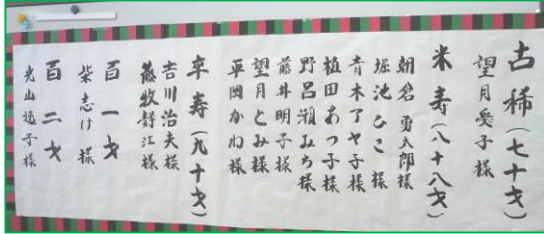 古稀(七十才)
望月愛子様
米寿(八十八才)
朝倉勇太郎様
堀池ひこ様
青木アヤ子様
植田あつ子様
野呂瀬みち様
藤井明子様
望月とみ様
平岡かね様
卒寿(九十才)
吉川治夫様
藤牧静江様
百一才
柴志け様
百二才
光山遠子様